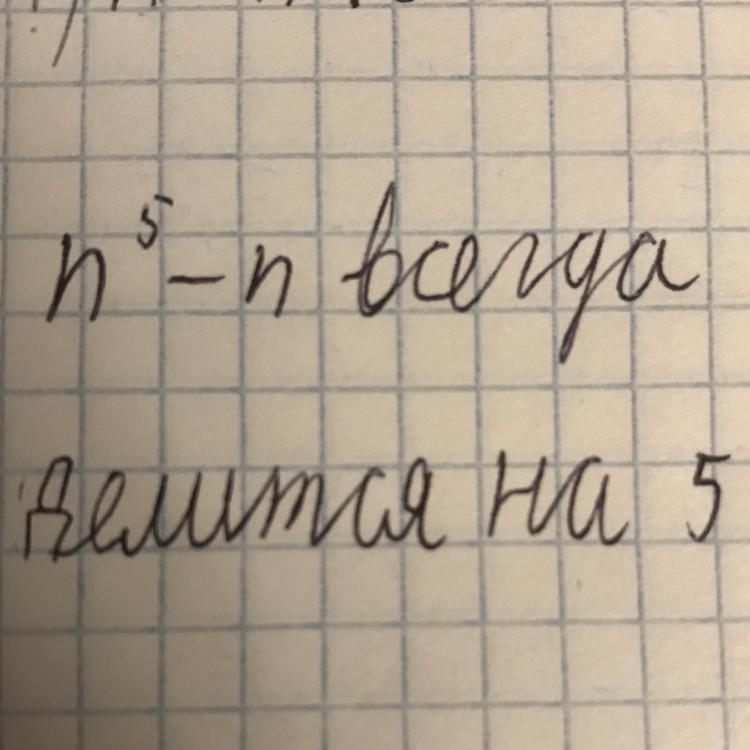 n⁵ – n всегда
делится на 5